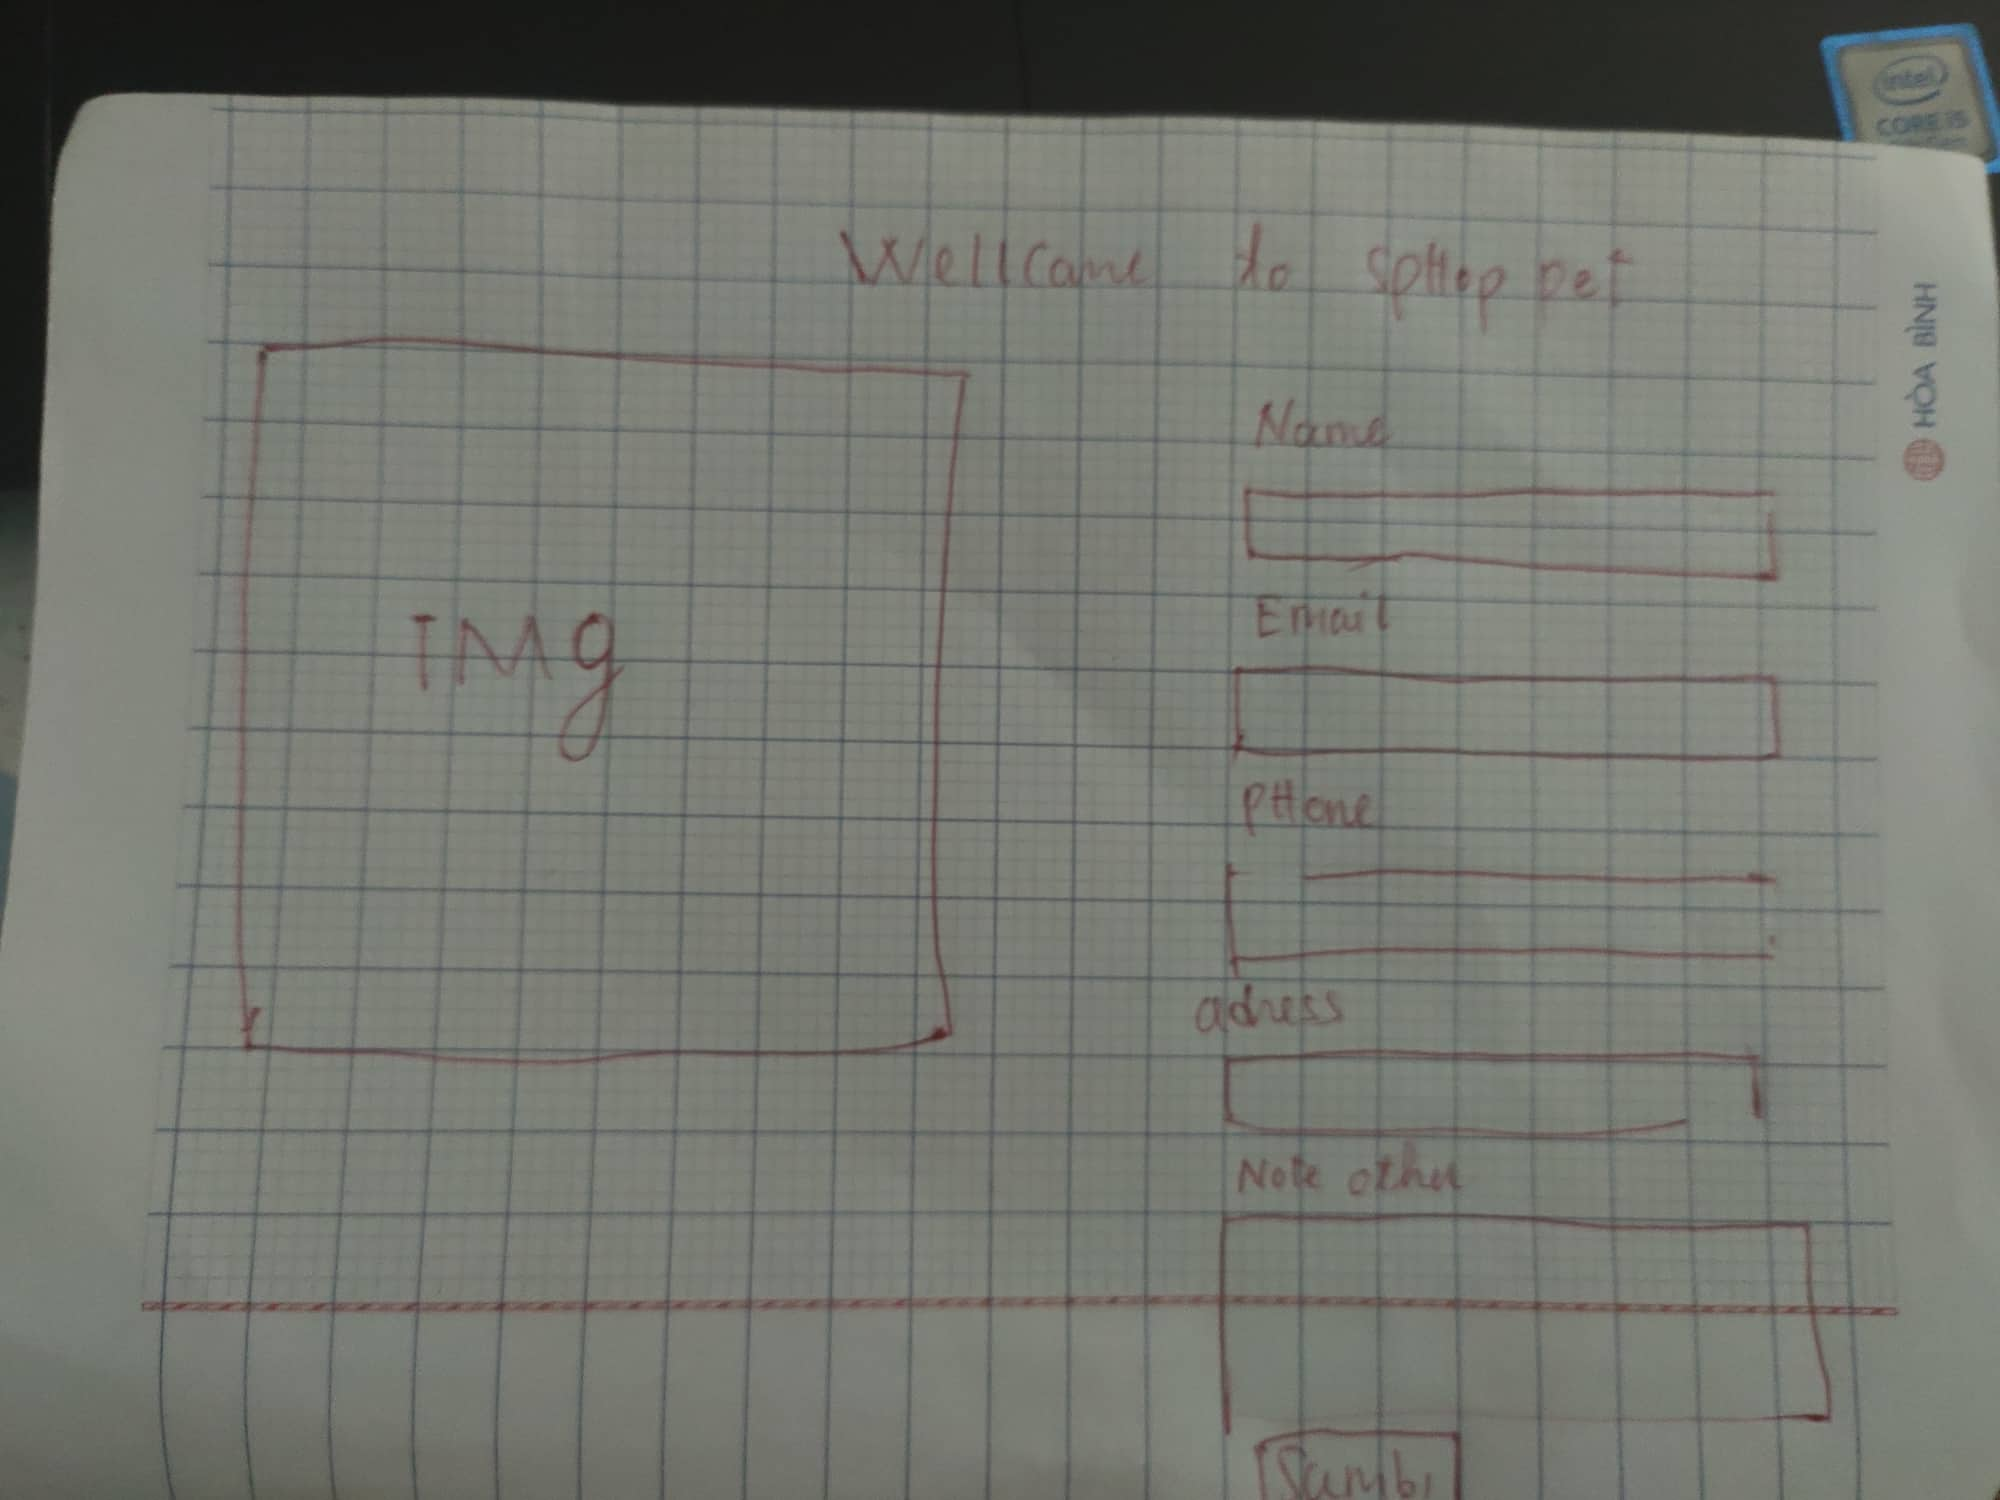 intel
CORE i5
Wellcame to spHop pet
HÒA BÌNH
IMg
Name
Email
pHone
adress
Note other
Sumbi